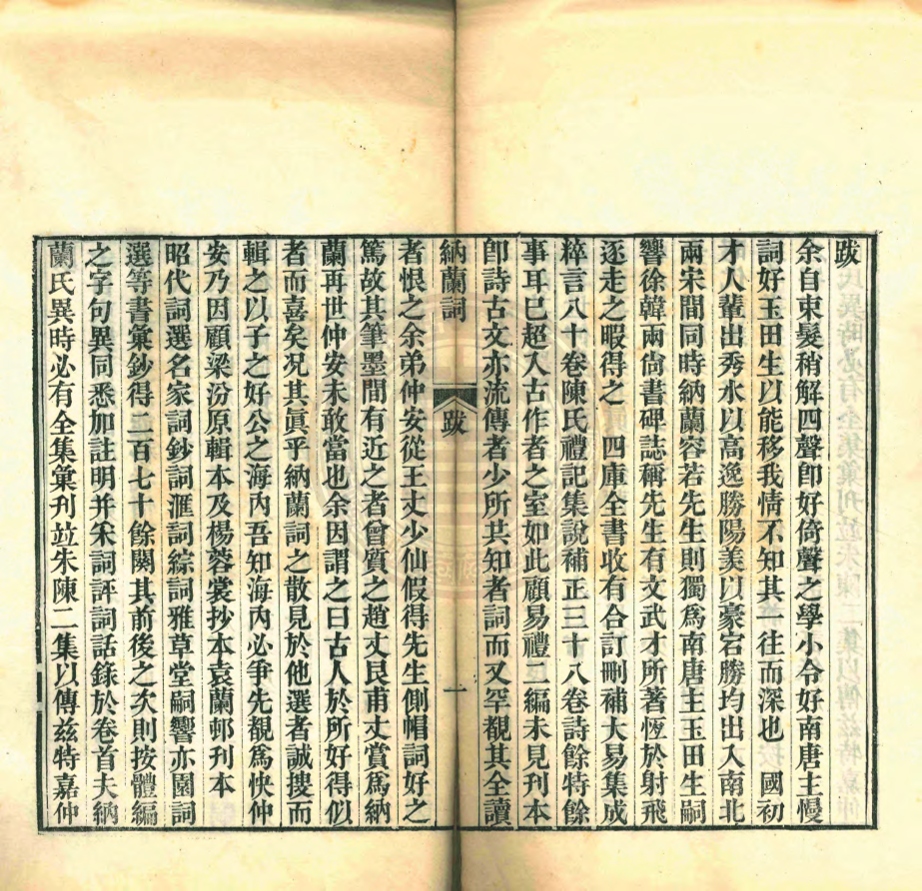 跋
余自束髮稍解四聲卽好倚聲之學小令好南唐主慢
詞好玉田生以能移我情不知其一往而深也　國初
才人輩出秀水以高逸勝陽羨以豪宕勝均出入南北
兩宋間同時納蘭容若先生則獨爲南唐主玉田生嗣
響徐韓兩尙書碑誌稱先生有文武才所著恆於射飛
逐走之暇得之　四庫全書收有合訂刪補大易集成
粹言八十卷陳氏禮記集說補正三十八卷詩餘特餘
事耳已超入古作者之室如此顧易禮二編未見刊本
卽詩古文亦流傳者少所共知者詞而又罕覩其全讀
納蘭詞
跋
一
者恨之余弟仲安從王丈少仙假得先生側帽詞好之
篤故其筆墨間有近之者曾質之趙丈艮甫丈賞爲納
蘭再世仲安未敢當也余因謂之曰古人於所好得似
者而喜矣况其眞乎納蘭詞之散見於他選者誠搜而
輯之以子之好公之海內吾知海內必爭先覩爲快仲
安乃因顧梁汾原輯本及楊蓉裳抄本袁蘭邨刊本
昭代詞選名家詞鈔詞滙詞綜詞雅草堂嗣響亦園詞
選等書彙鈔得二百七十餘闋其前後之次則按體編
之字句異同悉加註明并采詞評詞話錄於卷首夫納
蘭氏異時必有全集彙刊竝朱陳二集以傳茲特嘉仲